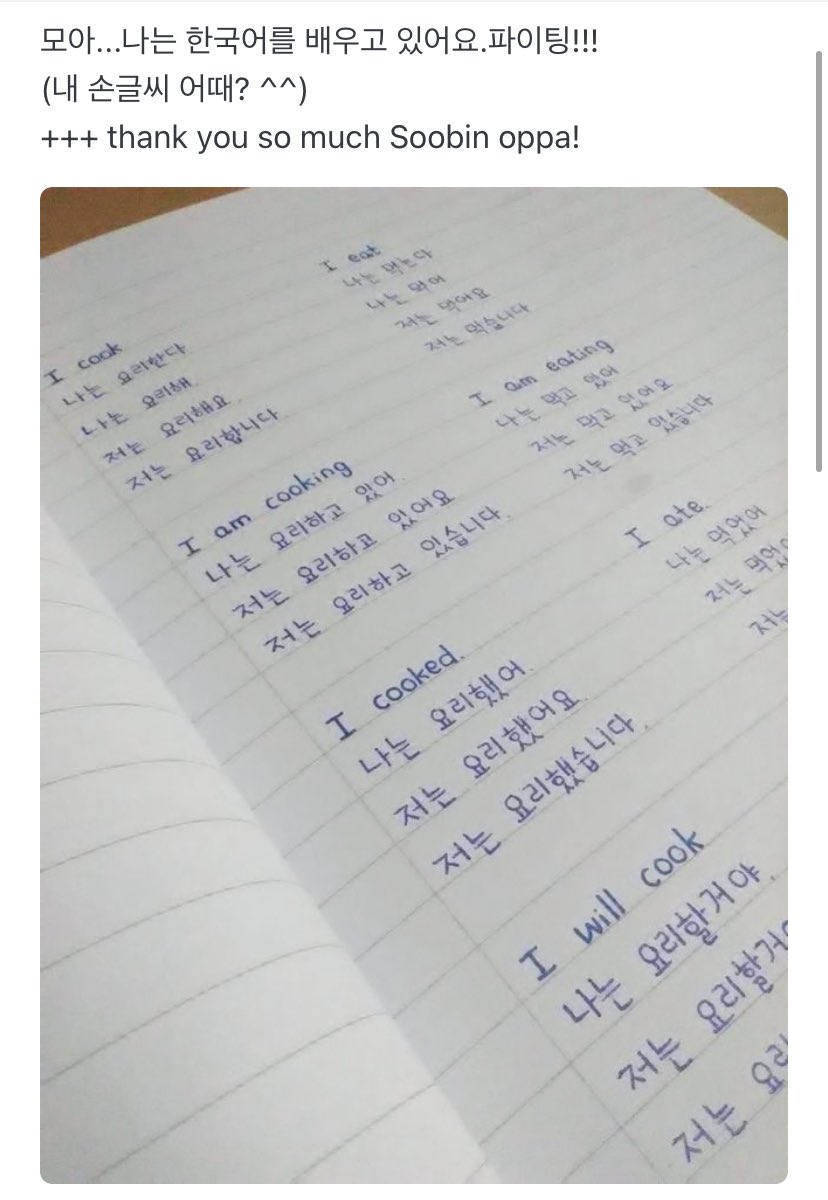 모아...나는 한국어를 배우고 있어요.파이팅!!!
(내 손글씨 어때? ^^)
+++ thank you so much Soobin oppa!
I eat
나는 먹는다
나는 먹어
저는 먹어요
저는 먹습니다
I cook
나는 요리한다
나는 요리해.
저는 요리해요
저는 요리합니다.
I am eating
나는 먹고 있어
저는 먹고 있어요
저는 먹고 있습니다
I am cooking
나는 요리하고 있어.
저는 요리하고 있어요
저는 요리하고 있습니다.
I ate.
나는 먹었어
저는 먹었
저는
I cooked.
나는 요리했어.
저는 요리했어요.
저는 요리했습니다.
I will cook
나는 요리할거야.
저는 요리할거
저는 요리